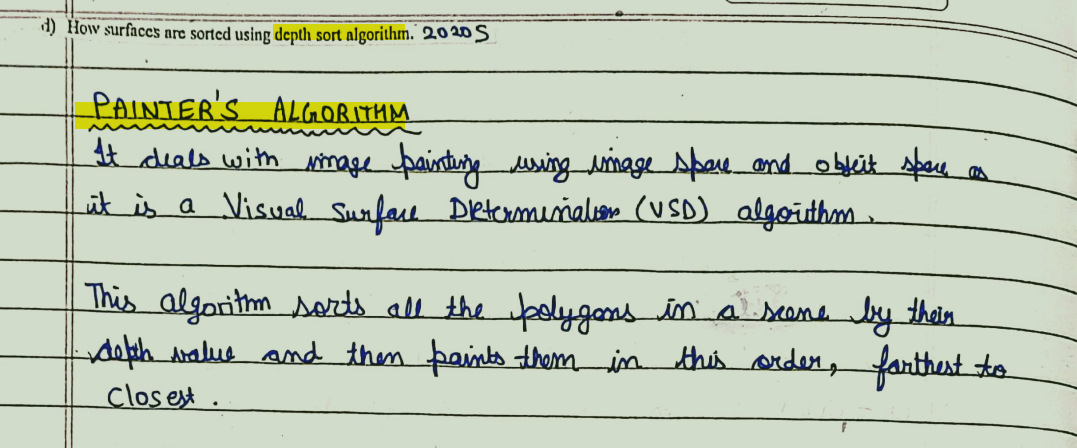 d) How surfaces are sorted using depth sort algorithm. 2020S
PAINTER'S ALGORITHM
It deals with image painting using image space and object space as
it is a Visual Surface Determination (VSD) algorithm.
This algorithm sorts all the polygons in a scene by their
depth value and then paints them in this order, farthest to
closest.